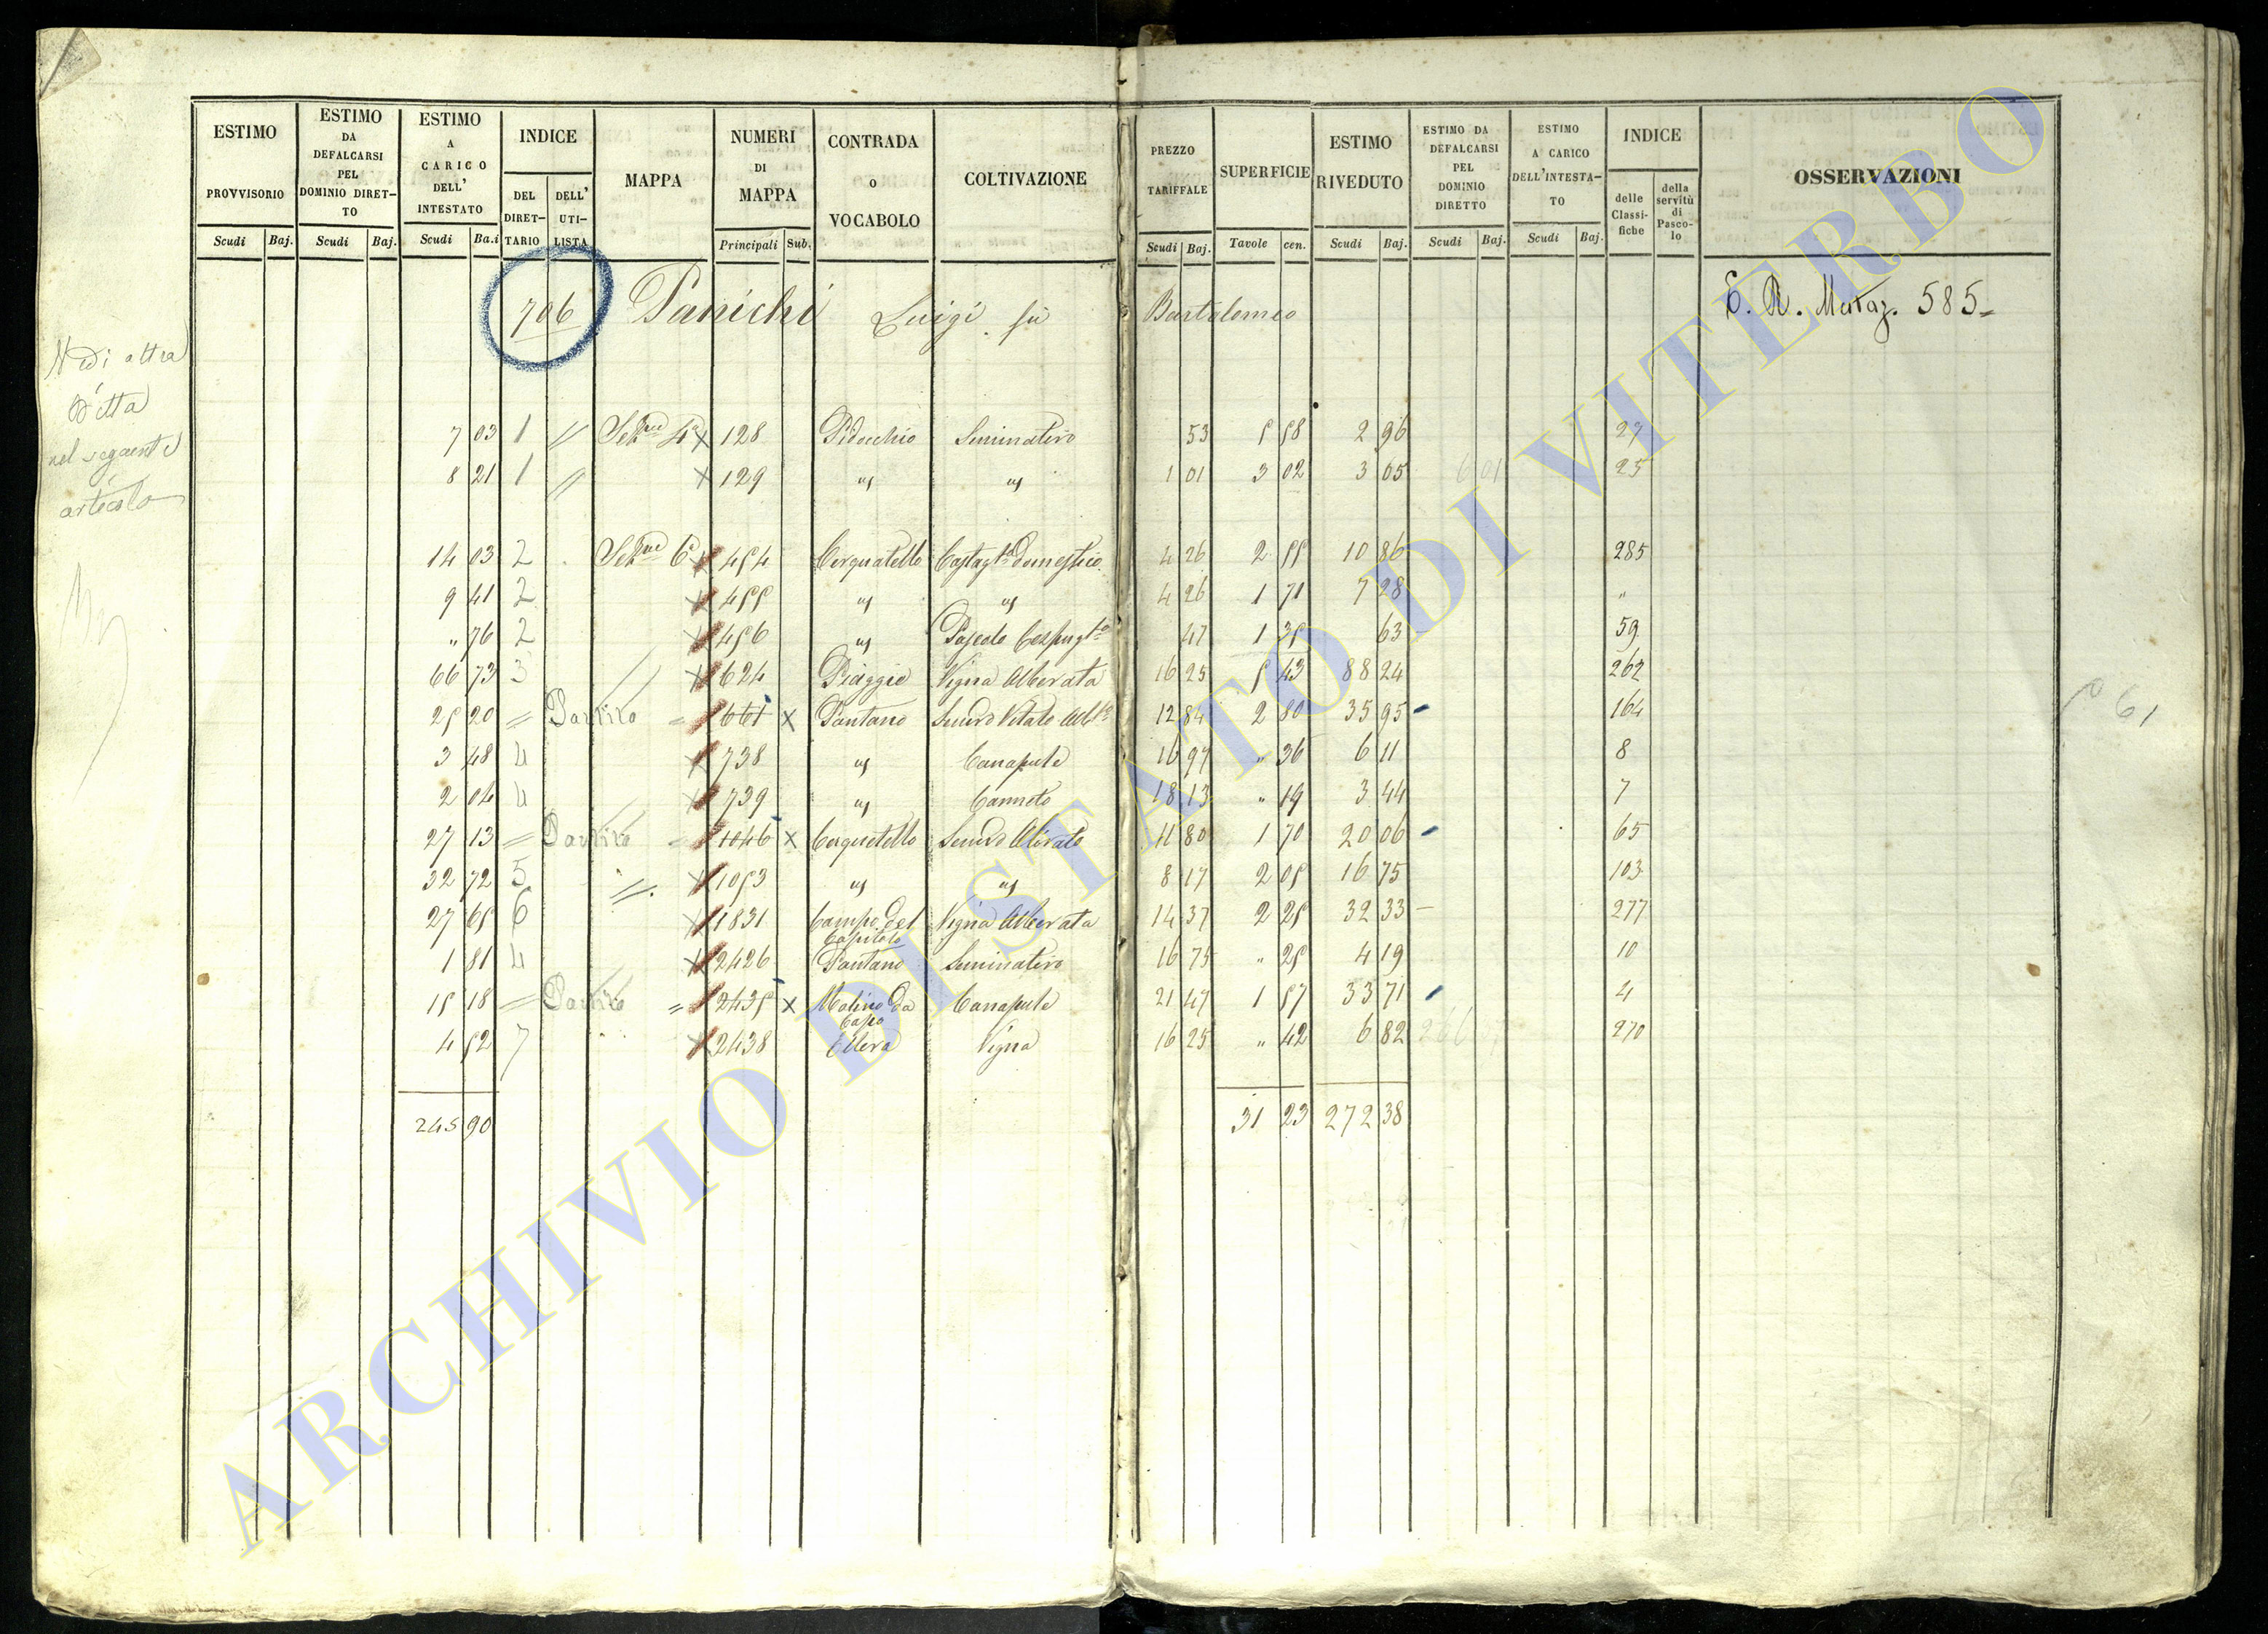 ESTIMO PROVVISORIO Scudi Baj.
ESTIMO DA DEFALCARSI PEL DOMINIO DIRET-TO Scudi Baj.
ESTIMO A CARICO DELL' INTESTATO Scudi Ba.i
INDICE DEL DIRET-TARIO DELL' UTI-LISTA
MAPPA
NUMERI DI MAPPA Principali Sub.
CONTRADA O VOCABOLO
COLTIVAZIONE
PREZZO TARIFFALE Scudi Baj.
SUPERFICIE Tavole cen.
ESTIMO RIVEDUTO Scudi Baj.
ESTIMO DA DEFALCARSI PEL DOMINIO DIRETTO Scudi Baj.
ESTIMO A CARICO DELL'INTESTA-TO Scudi Baj.
INDICE delle Classi-fiche della servitù di Pasco-lo
OSSERVAZIONI
706 Panichi Luigi fu Bartolomeo
E. R. Mutaz. 585
Vedi altra
Ditta
nel seguente
articolo
7 03 1 // Sez.ne 4a x 128 Pidocchio Seminativo 53 5 58 2 96 27
8 21 1 // x 129 " " 1 01 3 02 3 05 6 01 25
14 03 2 Sez.ne 6a x 454 Cerquatello Castag.to Domestico 4 26 2 55 10 86 285
9 41 2 x 455 " " 4 26 1 71 7 28 "
" 76 2 x 456 " Pascolo Cespug.to 47 1 35 63 59
66 73 3 x 624 Piaggie Vigna Alberata 16 25 5 43 88 24 262
25 20 = Partito = 661 x Pantano Semvo Vitato Alb.to 12 84 2 80 35 95 - 164
3 48 4 x 738 " Canapule 16 97 " 36 6 11 8
2 04 4 x 739 " Canneto 18 13 " 19 3 44 7
27 13 = Partito = 1046 x Cerquetello Semvo Alberato 11 80 1 70 20 06 - 65
32 72 5 // x 1053 " " 8 17 2 05 16 75 103
27 65 6 x 1831 Campo del Capitolo Vigna Alberata 14 37 2 25 32 33 - 277
1 81 4 x 2426 Pantano Seminativo 16 75 " 25 4 19 10
15 18 = Partito = 2435 x Molino da Capo Canapule 21 47 1 57 33 71 - 4
4 52 7 x 2438 Ellera Vigna 16 25 " 42 6 82 270
245 90 31 23 272 38
61
ARCHIVIO DI STATO DI VITERBO